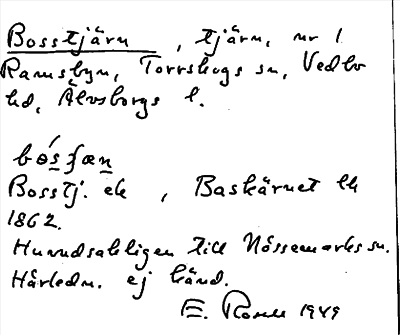 Bosstjärn, tjärn, nr 1
Ramsbyn, Torrskogs sn, Vedbo
hd, Älvsborgs l.
bósʃæn
Bosstj. ek, Baskärnet
1862.
Huvudsakligen till Nössemarks sn.
Härledn. ej känd.
E. 1949